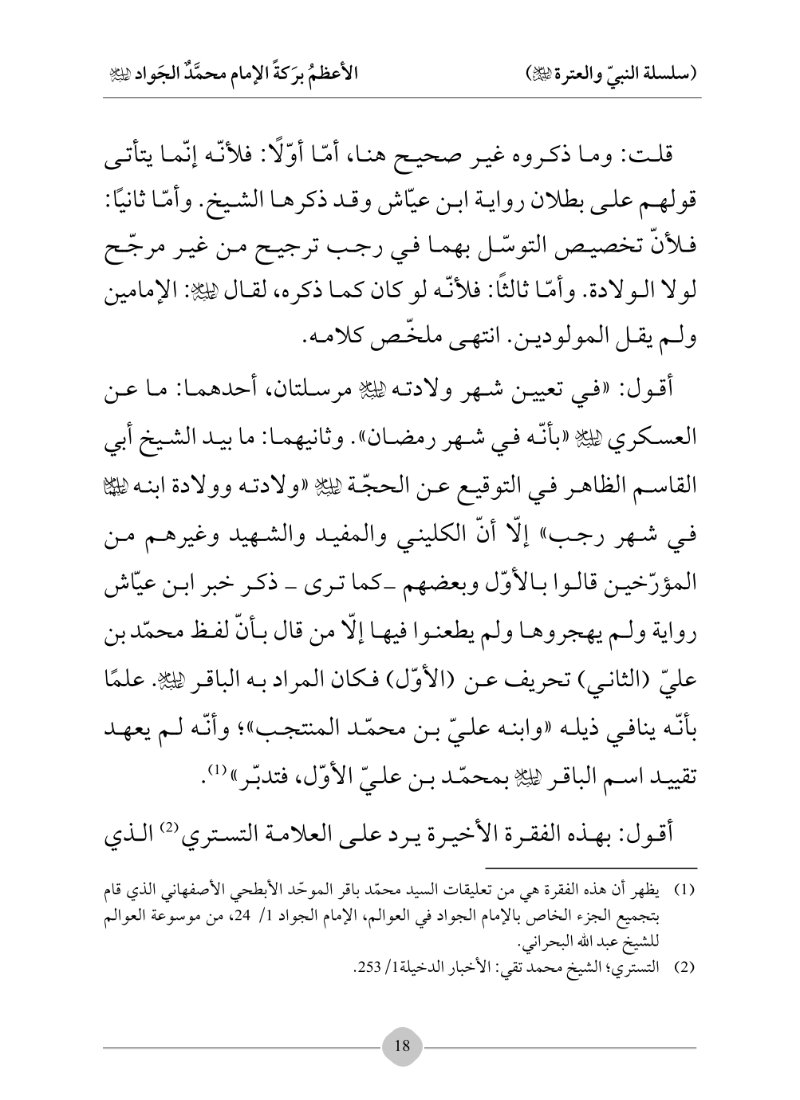 (سلسلة النبيّ والعترة ﷺ) الأعظمُ برَكةً الإمام محمَّدٌ الجَواد عليه السلام
قلت: وما ذكروه غير صحيح هنا، أمّا أوّلًا: فلأنّه إنّما يتأتى
قولهم على بطلان رواية ابن عيّاش وقد ذكرها الشيخ. وأمّا ثانيًا:
فلأنّ تخصيص التوسّل بهما في رجب ترجيح من غير مرجّح
لولا الولادة. وأمّا ثالثًا: فلأنّه لو كان كما ذكره، لقال عليه السلام: الإمامين
ولم يقل المولودين. انتهى ملخّص كلامه.
أقول: «في تعيين شهر ولادته عليه السلام مرسلتان، أحدهما: ما عن
العسكري عليه السلام «بأنّه في شهر رمضان». وثانيهما: ما بيد الشيخ أبي
القاسم الظاهر في التوقيع عن الحجّة عليه السلام «ولادته وولادة ابنه عليهما السلام
في شهر رجب» إلّا أنّ الكليني والمفيد والشهيد وغيرهم من
المؤرّخين قالوا بالأوّل وبعضهم _كما ترى _ ذكر خبر ابن عيّاش
رواية ولم يهجروها ولم يطعنوا فيها إلّا من قال بأنّ لفظ محمّد بن
عليّ (الثاني) تحريف عن (الأوّل) فكان المراد به الباقر عليه السلام. علمًا
بأنّه ينافي ذيله «وابنه عليّ بن محمّد المنتجب»؛ وأنّه لم يعهد
تقييد اسم الباقر عليه السلام بمحمّد بن عليّ الأوّل، فتدبّر»(1).
أقول: بهذه الفقرة الأخيرة يرد على العلامة التستري(2) الذي
(1) يظهر أن هذه الفقرة هي من تعليقات السيد محمّد باقر الموحّد الأبطحي الأصفهاني الذي قام
بتجميع الجزء الخاص بالإمام الجواد في العوالم، الإمام الجواد 1/ 24، من موسوعة العوالم
للشيخ عبد الله البحراني.
(2) التستري؛ الشيخ محمد تقي: الأخبار الدخيلة1/ 253.
18